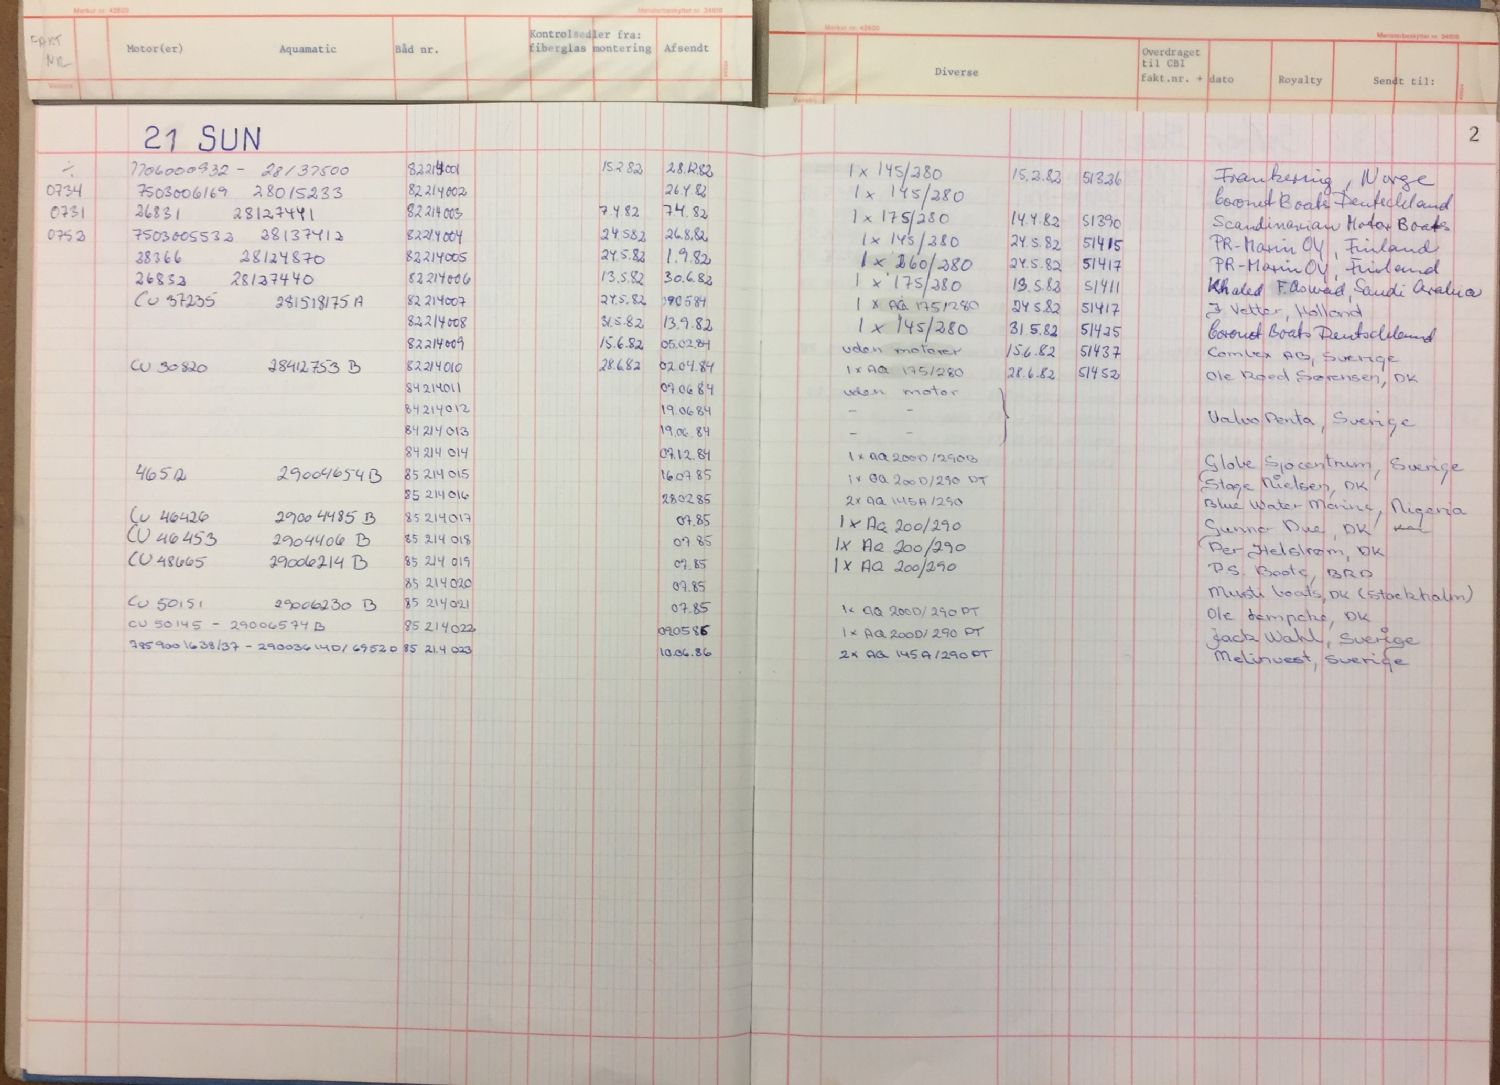 Merkur nr. 42820 Mønsterbeskyttet nr. 34618
FAKT NR
Motor(er) Aquamatic Båd nr. Kontrolsedler fra: fiberglas montering Afsendt
Merkur nr. 42820 Mønsterbeskyttet nr. 34618
Diverse Overdraget til CBI fakt.nr. + dato Royalty Sendt til:
2
21 SUN
÷ 7706000932 - 28137500 82214001 15.2.82 28.12.82 1 x 145/280 15.2.82 51326 Norge
0734 7503006169 28015233 82214002 26.4.82 1 x 145/280 Coronet Boats Deutschland
0731 26831 28127441 82214003 7.4.82 7.4.82 1 x 175/280 14.4.82 51390 Scandinavian Motor Boats
0752 7503005532 28137412 82214004 24.5.82 26.8.82 1 x 145/280 24.5.82 51415 PR-Marin OY, Finland
28366 28124870 82214005 24.5.82 1.9.82 1 x 260/280 24.5.82 51417 PR-Marin OY, Finland
26832 28127440 82214006 13.5.82 30.6.82 1 x 175/280 13.5.82 51411 Khaled F. Aswad, Saudi Arabia
CU 37235 281518175 A 82214007 24.5.82 090584 1 x AQ 175/280 24.5.82 51417 J Vetter, Holland
82214008 31.5.82 13.9.82 1 x 145/280 31.5.82 51425 Coronet Boats Deutschland
82214009 15.6.82 05.02.84 uden motorer 15.6.82 51437 Comvex AB, Sverige
CU 30820 28412753 B 82214010 28.6.82 02.04.84 1 x AQ 175/280 28.6.82 51452 Ole Roed Sørensen, DK
84214011 07.06.84 uden motor
84214012 19.06.84 - - Volvo Penta, Sverige
84214013 19.06.84 - -
84214014 07.12.84 1 x AQ 200D/290B Globe Sjöcentrum, Sverige
4652 29004654 B 85214015 16.07.85 1 x AQ 200D/290 DT Stage Nielsen, DK
85214016 280285 2x AQ 145A/290 Blue Water Marine, Nigeria
CU 46426 29004485 B 85214017 07.85 1 x AQ 200/290 Gunnar Due, DK
CU 46453 2904406 B 85214018 07.85 1 x AQ 200/290 Per Helstrøm, DK
CU 48665 29006214 B 85214019 07.85 1 x AQ 200/290 P.S. Boote, BRD
85214020 07.85 boats, DK (Stockholm)
CU 50151 29006230 B 85214021 07.85 1x AQ 200D/290 DT Ole DK
CU 50145 - 29006574 B 85214022 090586 1x AQ 200D/290 DT Jack Wahl, Sverige
7859001638/37 - 29003614D/69520 85214023 10.06.86 2x AQ 145A/290 DT Melinvest, Sverige